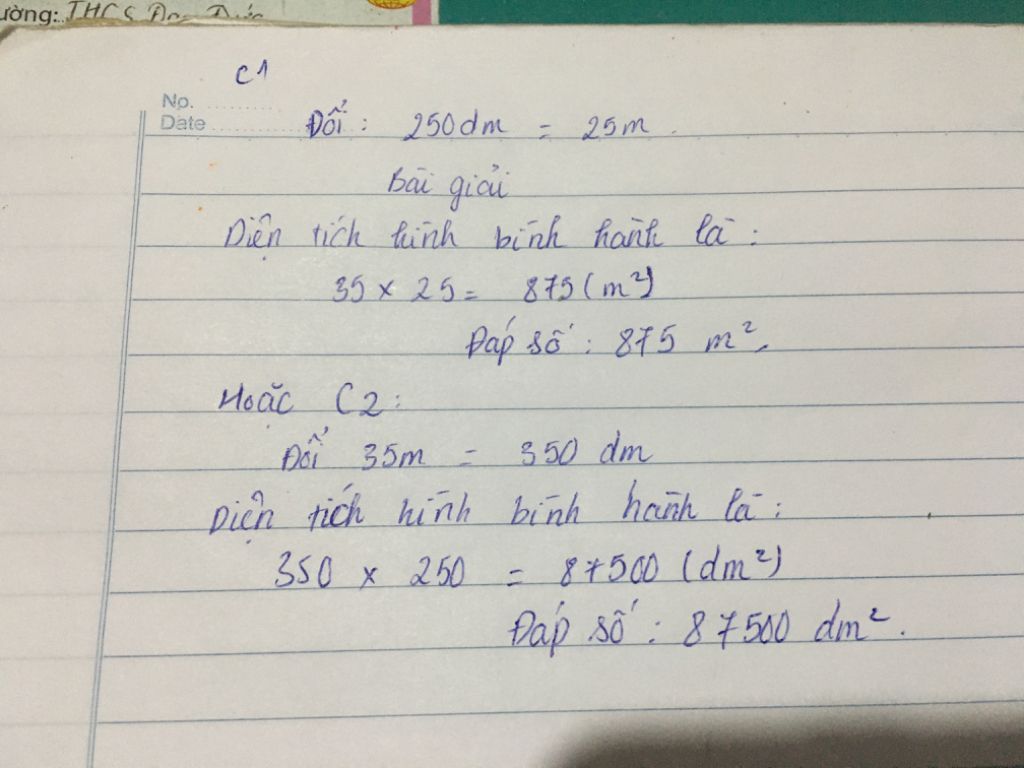 ường: THCS
C1
No.
Date
Đổi: 250dm = 25m.
Bài giải
Diện tích hình bình hành là:
35 × 25 = 875 (m²)
Đáp số: 875 m².
Hoặc C2:
Đổi 35m = 350 dm
Diện tích hình bình hành là:
350 × 250 = 87500 (dm²)
Đáp số: 87500 dm².